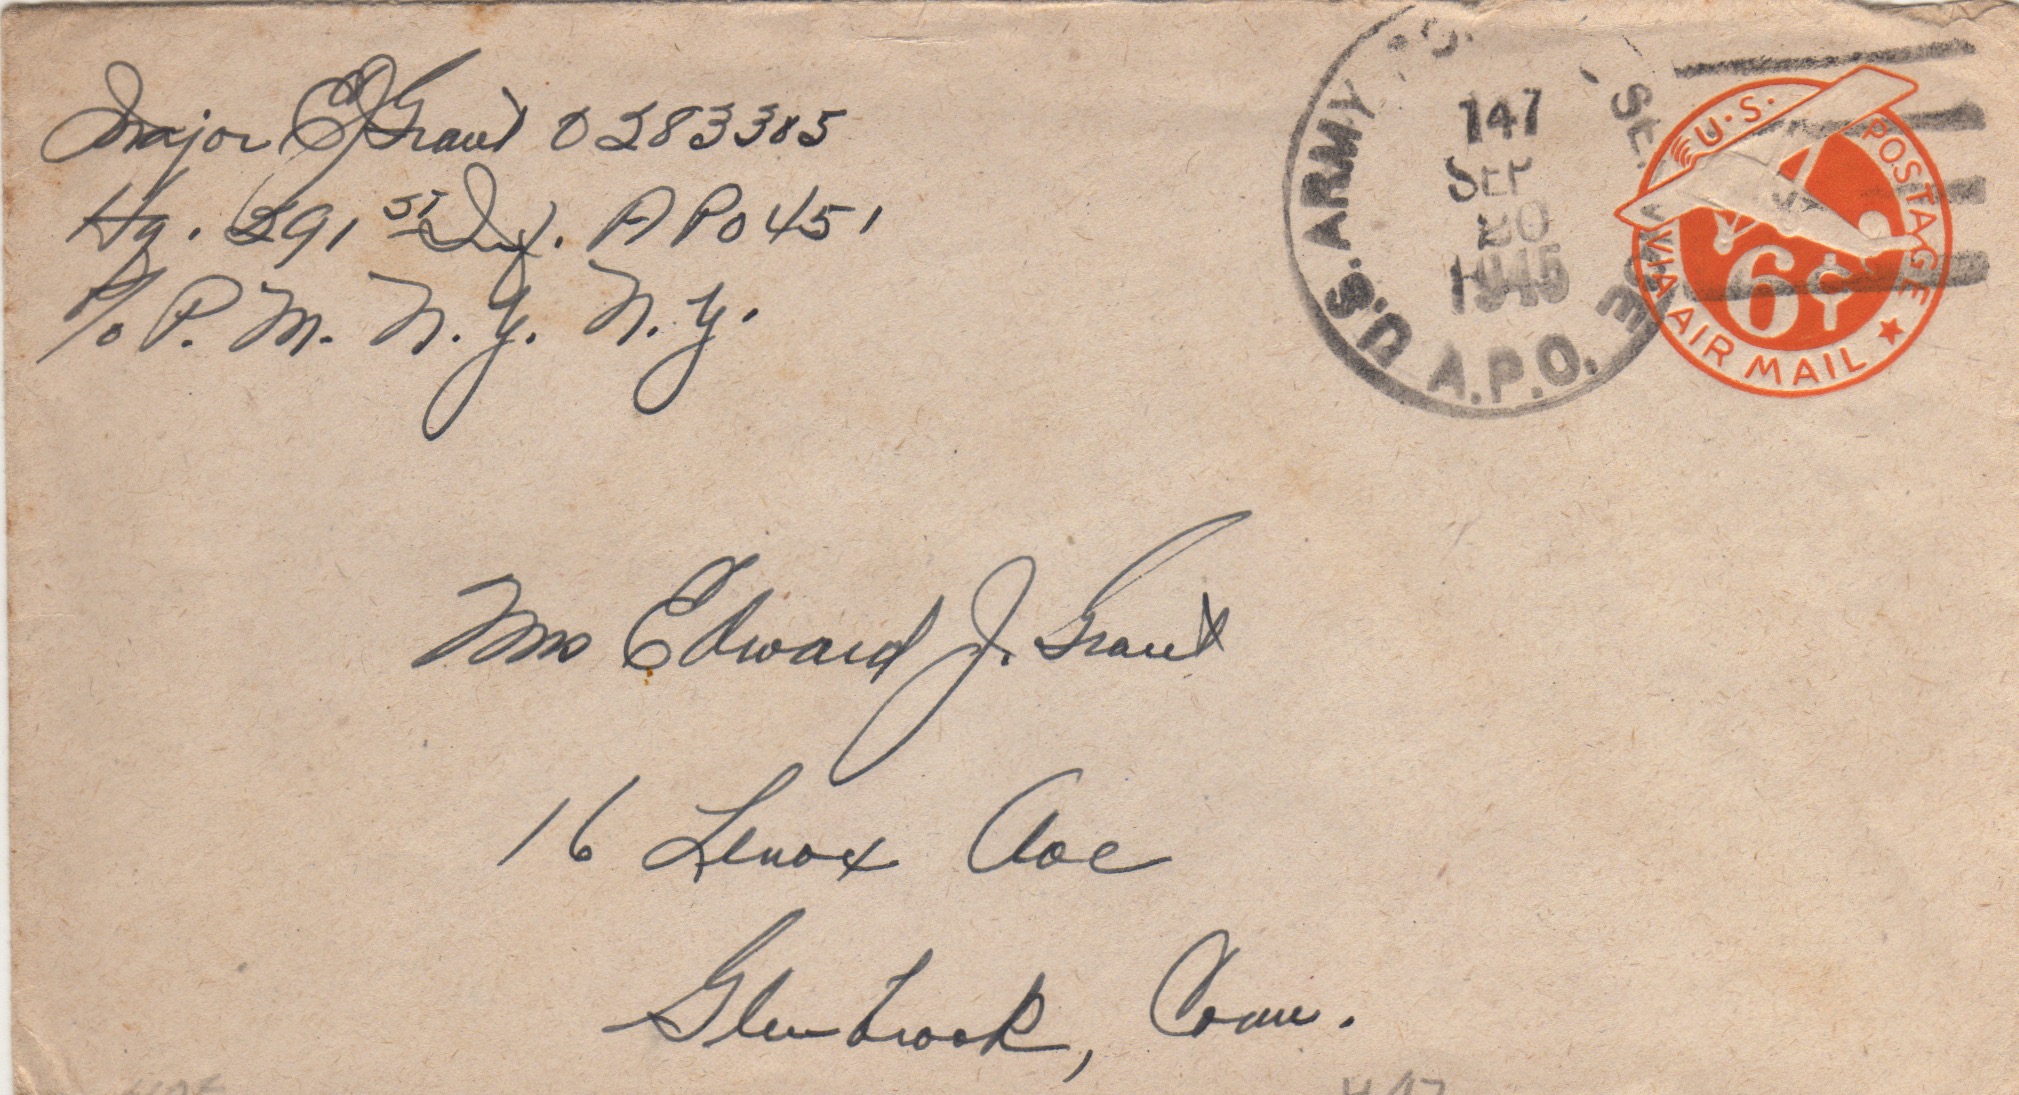 Major E J Grant O283385
Hq. 291st Inf. APO 451
c/o P.M. N.Y. N.Y.
U.S. ARMY
147
SEP
20
1945
A.P.O.
U.S. POSTAGE
6¢
VIA AIR MAIL
Mrs Edward J. Grant
16 Lenox Ave
Glenbrook, Conn.